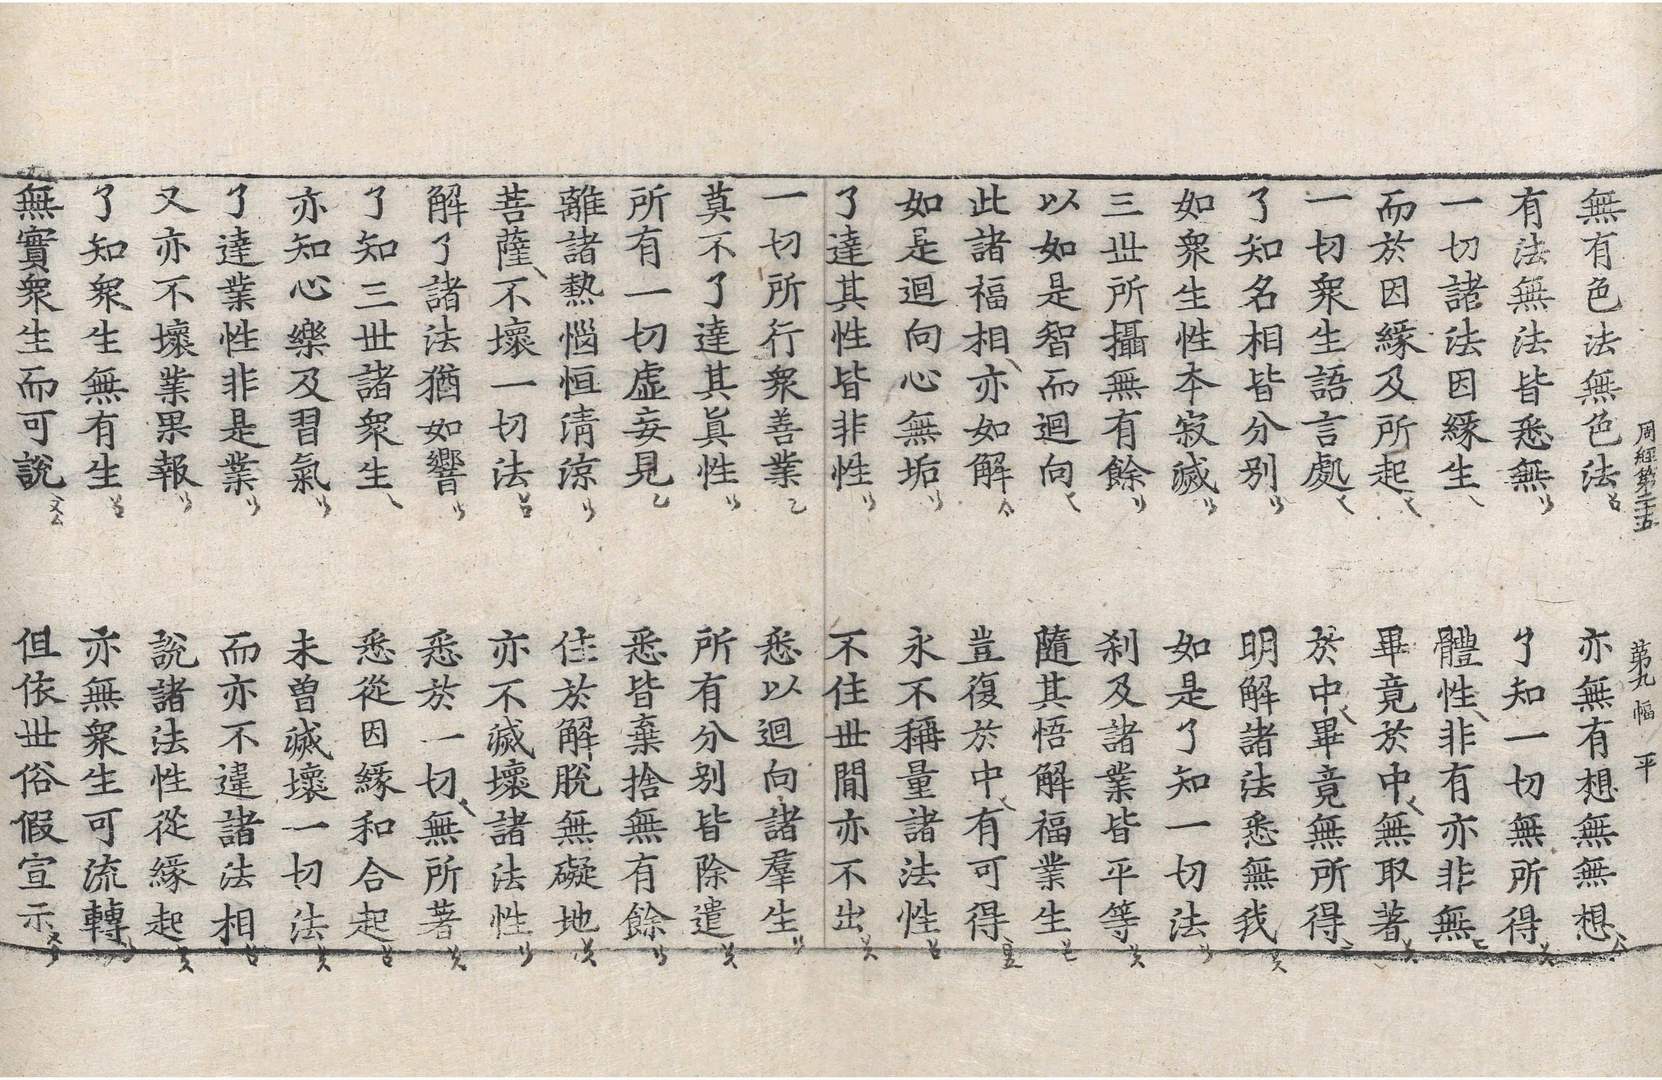 周經第二十五 第九幅 平
無有色法無色法
亦無有想無無想
有法無法皆悉無
了知一切無所得
一切諸法因緣生
體性非有亦非無
而於因緣及所起
畢竟於中無取著
一切衆生語言處
於中畢竟無所得
了知名相皆分別
明解諸法悉無我
如衆生性本寂滅
如是了知一切法
三世所攝無有餘
刹及諸業皆平等
以如是智而迴向
隨其悟解福業生
此諸福相亦如解
豈復於中有可得
如是迴向心無垢
永不稱量諸法性
了達其性皆非性
不住世間亦不出
一切所行衆善業
悉以迴向諸羣生
莫不了達其眞性
所有分別皆除遣
所有一切虛妄見
悉皆棄捨無有餘
離諸熱惱恒清涼
住於解脫無礙地
菩薩不壞一切法
亦不滅壞諸法性
解了諸法猶如響
悉於一切無所著
了知三世諸衆生
悉從因緣和合起
亦知心樂及習氣
未曾滅壞一切法
了達業性非是業
而亦不違諸法相
又亦不壞業果報
說諸法性從緣起
了知衆生無有生
亦無衆生可流轉
無實衆生而可說
但依世俗假宣示